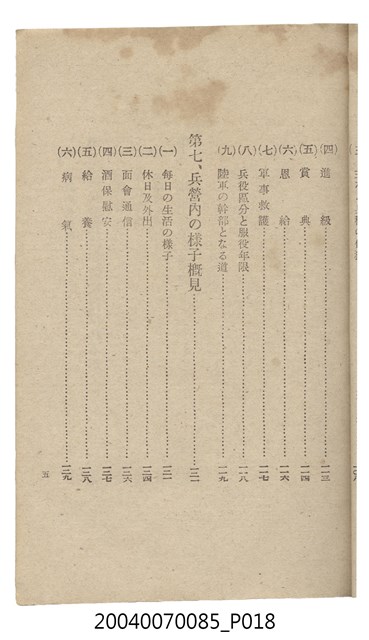 (四) 進級……一一三
(五) 賞典……一一四
(六) 恩給……一一六
(七) 軍事救護……一一七
(八) 兵役區分と服役年限……一一八
(九) 陸軍の幹部となる道……一一九
第七、兵營內の樣子概見……一二一
(一) 每日の生活の樣子……一二一
(二) 休日及外出……一二四
(三) 面會通信……一二六
(四) 酒保慰安……一二七
(五) 給養……一二八
(六) 病氣……一二九
五
20040070085_P018